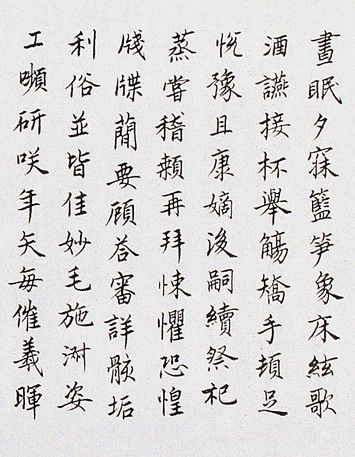 晝眠夕寐籃笋象床絃歌
酒讌接杯舉觴矯手頓足
悅豫且康嫡後嗣續祭祀
蒸嘗稽顙再拜悚懼恐惶
牋牒蕳要顧荅審詳骸垢
利俗並皆佳妙毛施淑姿
工嚬研咲年矢每催羲暉